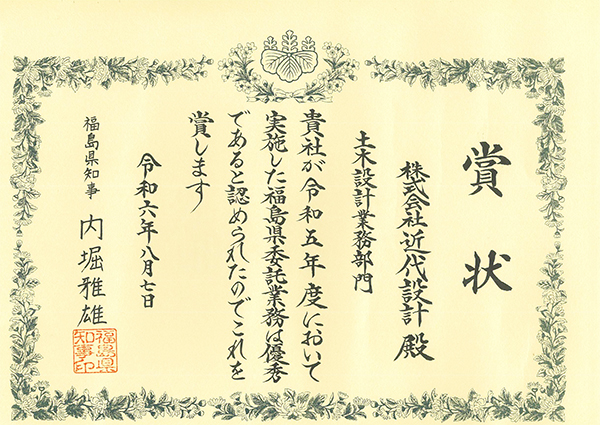 賞状
株式会社近代設計殿
土木設計業務部門
貴社が令和五年度において
実施した福島県委託業務は優秀
であると認められたのでこれを
賞します
令和六年八月七日
福島県知事 内堀雅雄
福島県
知事印